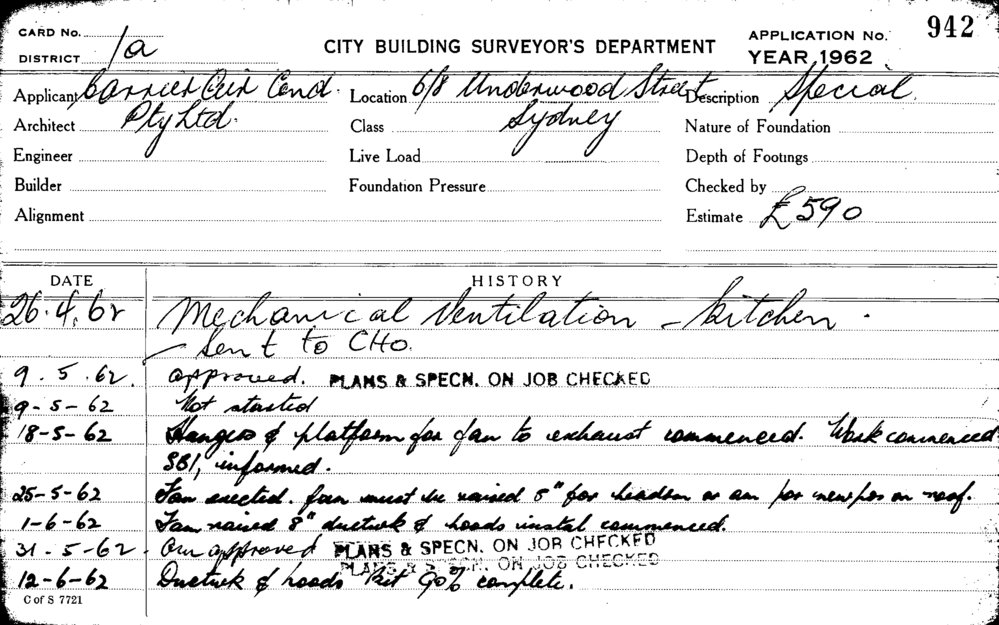 CARD No.
DISTRICT 1a
CITY BUILDING SURVEYOR'S DEPARTMENT
APPLICATION No. 942
YEAR 1962
Applicant Carrier Air Cond. Location 6/8 Underwood Street Description Special.
Architect Pty Ltd. Class Sydney Nature of Foundation
Engineer Live Load Depth of Footings
Builder Foundation Pressure Checked by
Alignment Estimate £590
DATE HISTORY
26.4.62 Mechanical Ventilation - kitchen.
- Sent to CHO.
9.5.62 approved. PLANS & SPECN. ON JOB CHECKED
9-5-62 Not started
18-5-62 Hangers & platform for fan to exhaust commenced. Work commenced
SBI, informed.
25-5-62 Fan erected. fan must be raised 8" for on roof.
1-6-62 Fan raised 8" ductwk & hoods instal commenced.
31-5-62. approved PLANS & SPECN. ON JOB CHECKED
PLANS & SPECN. ON JOB CHECKED
12-6-62 Ductwk & hoods kit 90% complete.
C of S 7721